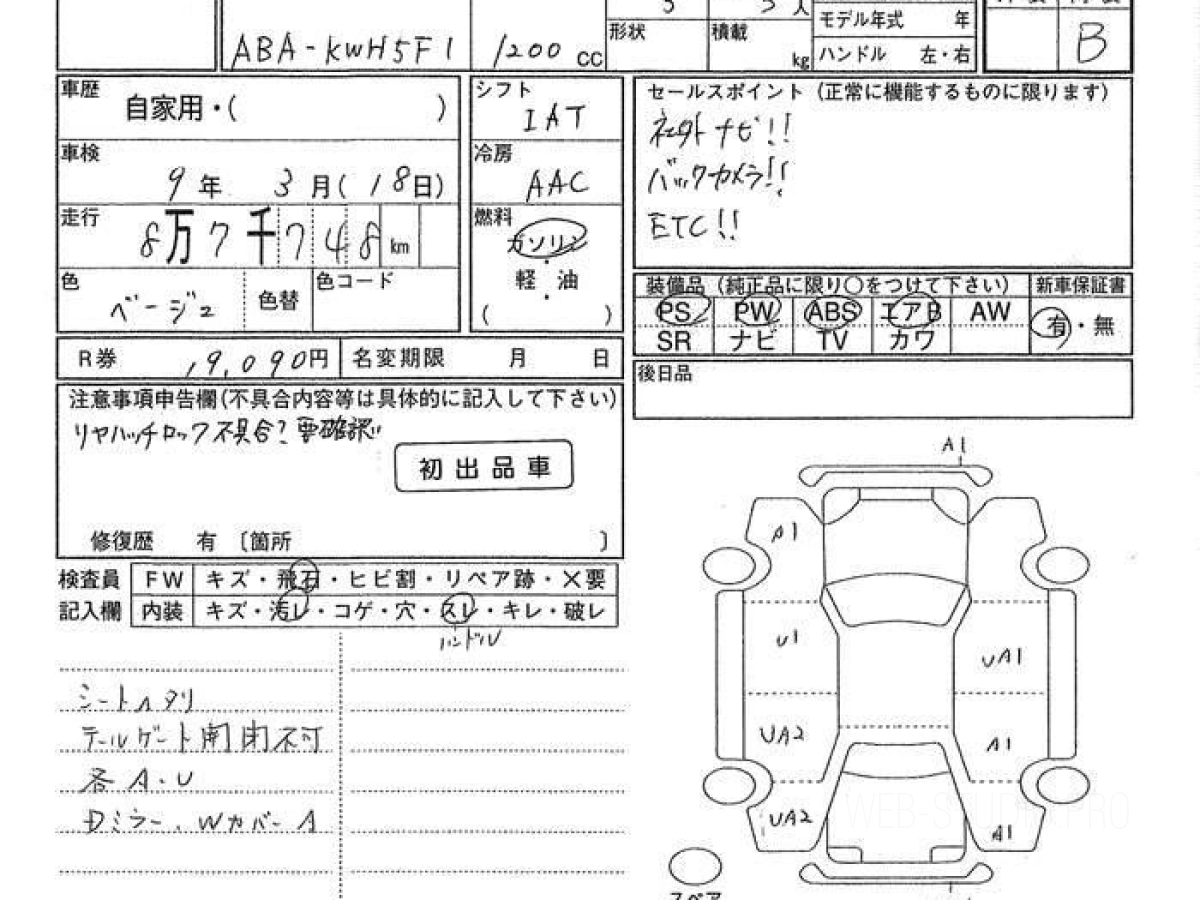 5 5 人
形状 積載 kg
モデル年式 年
ハンドル 左・右
B
ABA-KWH5F1 1200 cc
車歴 自家用・( )
車検 9年 3月(18日)
走行 8万7千748km
色 ベージュ 色替 色コード
シフト IAT
冷房 AAC
燃料 ガソリン・軽油・( )
セールスポイント(正常に機能するものに限ります)
社外ナビ!!
バックカメラ!!
ETC!!
装備品(純正品に限り○をつけて下さい) 新車保証書
PS PW ABS エアB AW 有・無
SR ナビ TV カワ
R券 19,090円 名変期限 月 日
後日品
注意事項申告欄(不具合内容等は具体的に記入して下さい)
リヤハッチロック不具合?要確認!!
初出品車
修復歴 有〔箇所 〕
検査員 FW キズ・飛石・ヒビ割・リペア跡・×要
記入欄 内装 キズ・汚レ・コゲ・穴・スレ・キレ・破レ
ハンドル
シートヘタリ
テールゲート開閉不可
各A・U
Dミラー、WカバーA
A1
A1
U1
UA1
UA2
A1
UA2
A1
スペア
WEB-STUDIA.PRO